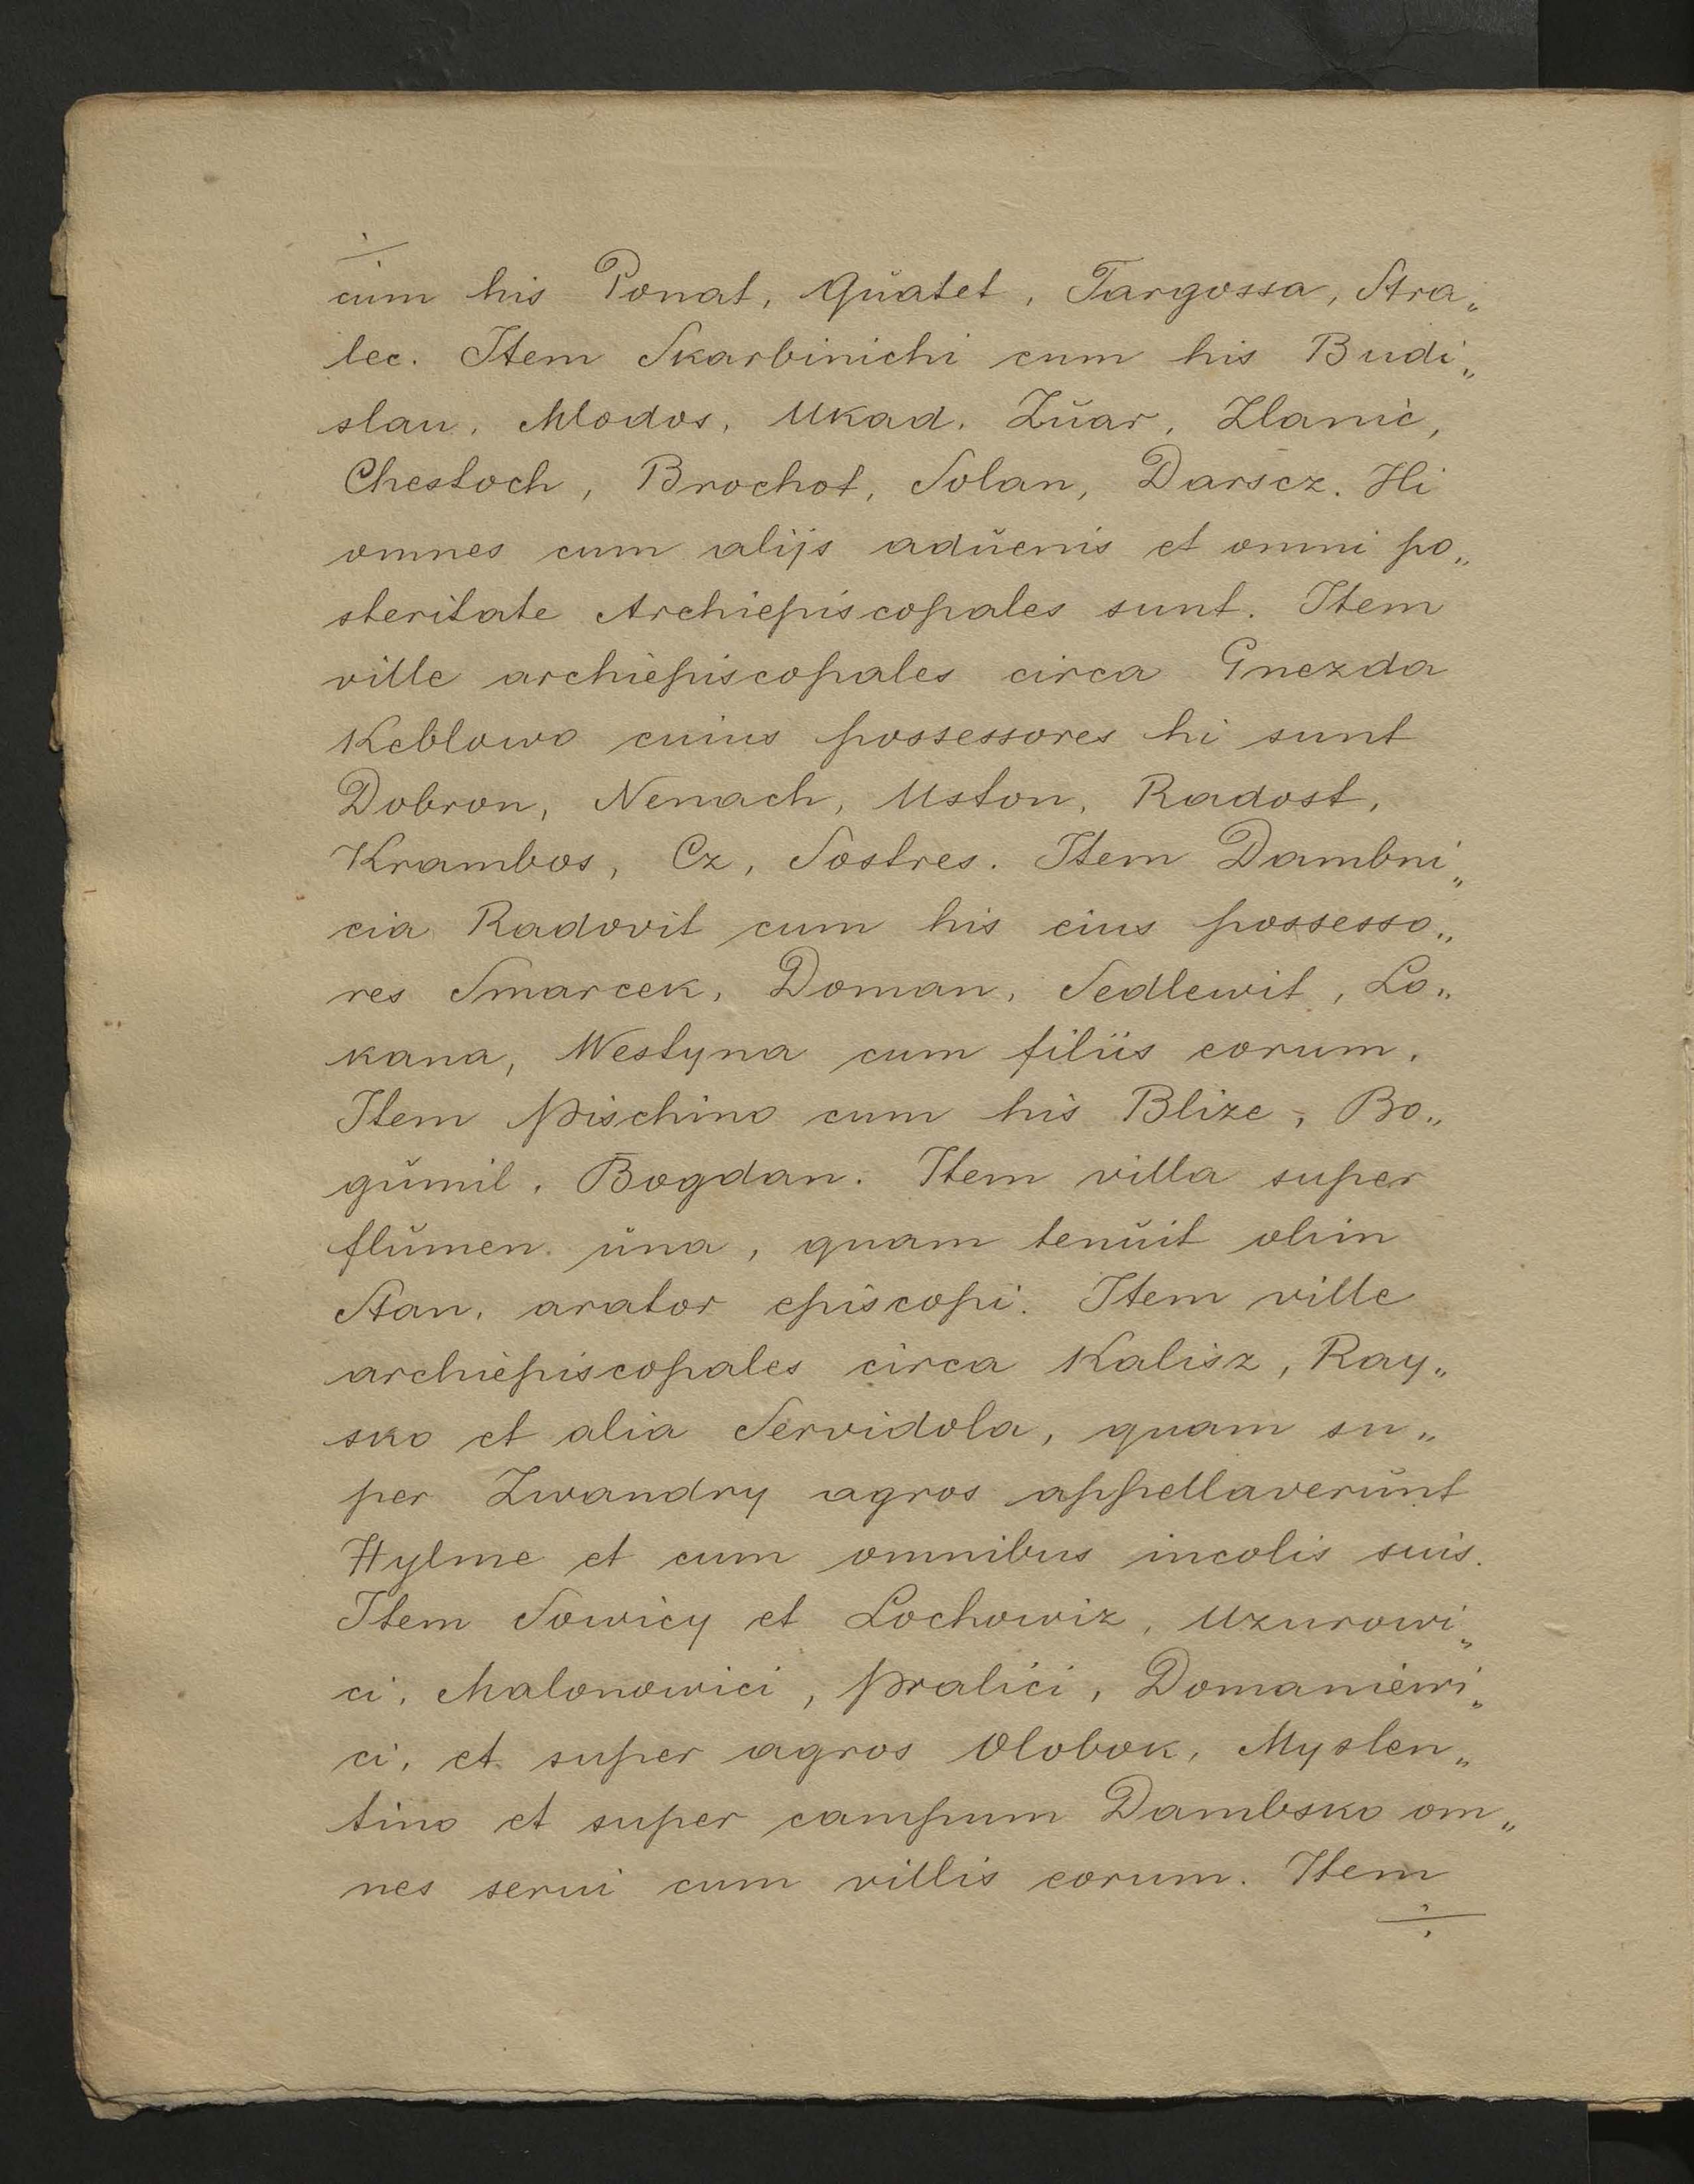 ÷
cum his Ponat, Quatet, Targossa, Stra„
lec. Item Skarbinichi cum his Budi„
slau, Mlodos, Ukad, Zŭar, Zlanic,
Chestoch, Brochot, Solan, Darscz. Hi
omnes cum alijs adŭenis et omni po„
steritate Archiepiscopales sunt. Item
ville archiepiscopales circa Gnezda
Keblowo cuius possessores hi sunt
Dobron, Nemach, Uston, Radost,
Krambos, Cz, Sostres. Item Dambni„
cia Radovit cum his eius possesso„
res Smarcek, Doman, Sedlewit, Lo„
kana, Westyna cum filiis eorum.
Item Pischino cum his Blize, Bo„
gŭmil, Bogdan. Item villa super
flŭmen ŭna, quam tenŭit olim
Stan, arator episcopi. Item ville
archiepiscopales circa Kalisz, Ray„
sko et alia Servidola, quam su„
per Zwandry agros appellaverŭnt
Hylme et cum omnibus incolis suis.
Item Sowicy et Lochowiz, Uzurowi„
ci, Malonowici, Pralici, Domaniewi„
ci, et super agros Olobok, Myslen„
tino et super campum Dambsko om„
nes serui cum villis eorum. Item
÷